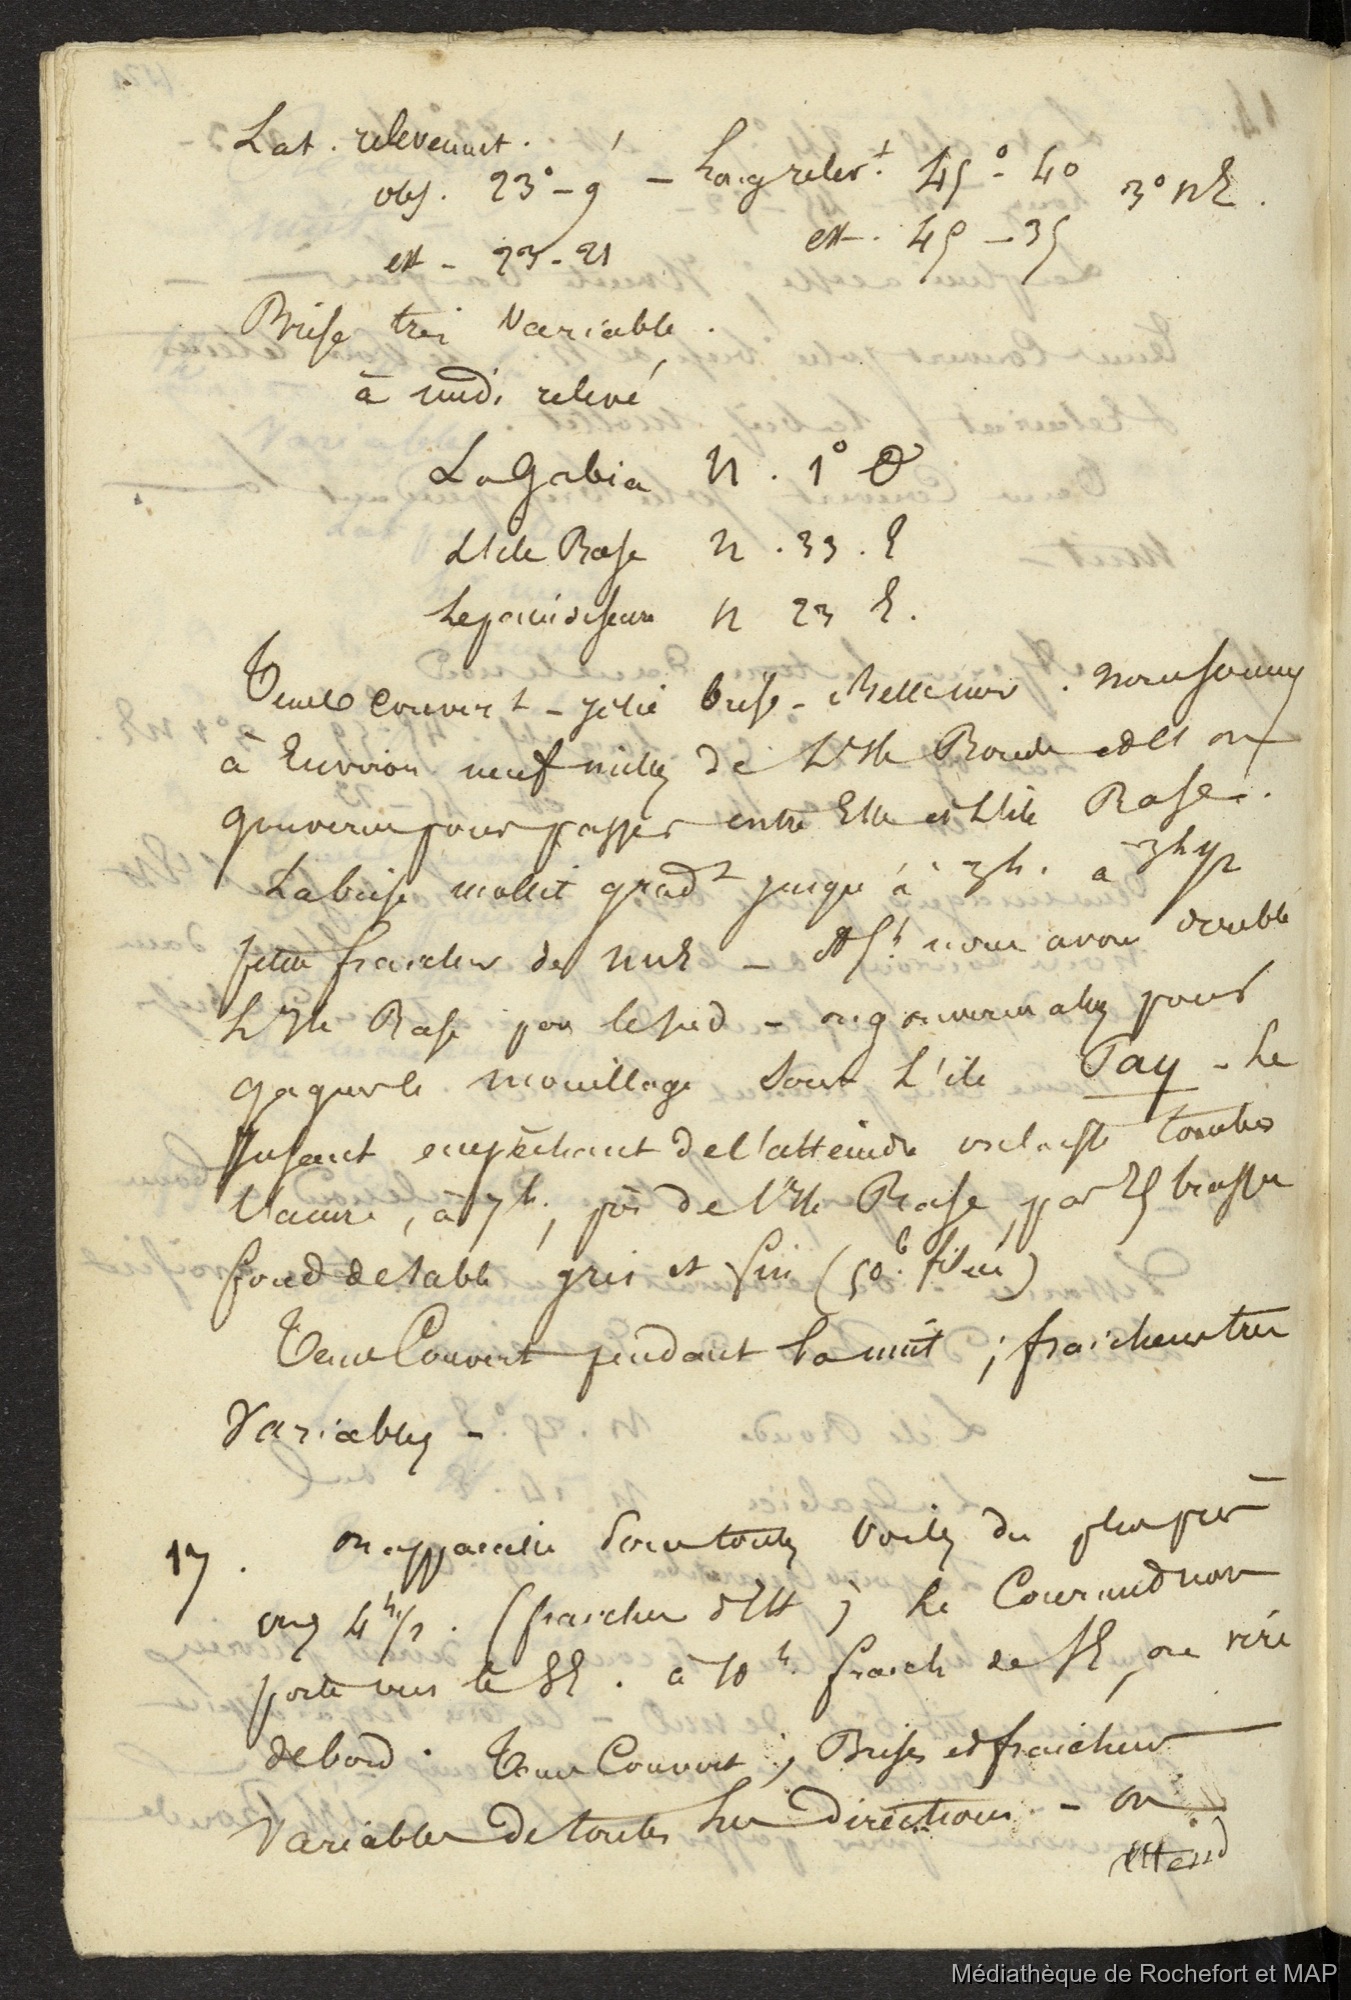 Lat. relevemt.
obs. 23° - 9' - Longrelevt. 45° - 40 3° NE.
est - 23 - 21 est. 45 - 35
Brise très variable.
à midi relevé
La Gabia N. 1° O
L'ile Rase N. 33. E
Le pain de sucre N 23 E.
Tems couvert - jolie brise - Belle mer. nous sommes
à Environ neuf milles de L'Ile Ronde et on
gouverne pour passer entre Elle et L'ile Rase.
La brise mollit gradt jusqu'à 3h. à 3h 1/2
petite fraicheur de NNE - A 5h nous avons doublé
L'Ile Rase par le sud - on gouverne alors pour
gagner le mouillage sous L'ile Pay - Le
Jusant empêchant de l'atteindre on laisse tomber
l'ancre, à 7h, près de l'Ile Rase, par 25 brasses
fond de sable gris et fin (50 b. filées)
Tems Couvert pendant la nuit ; fraicheurs très
Variables -
17. on appareille sous toutes voiles du plus près
vers 4h 1/2. (fraicheur d'Est) ; Le Courant nous
porte vers le SE. à 10h. fraich de SE, on vire
de bord. Tems Couvert ; Brises et fraicheurs
Variables de toutes les directions. - on
attend
Médiathèque de Rochefort et MAP